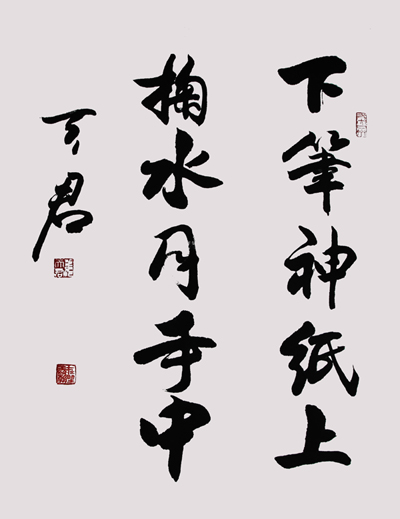 下筆神紙上
掬水月手中
天君